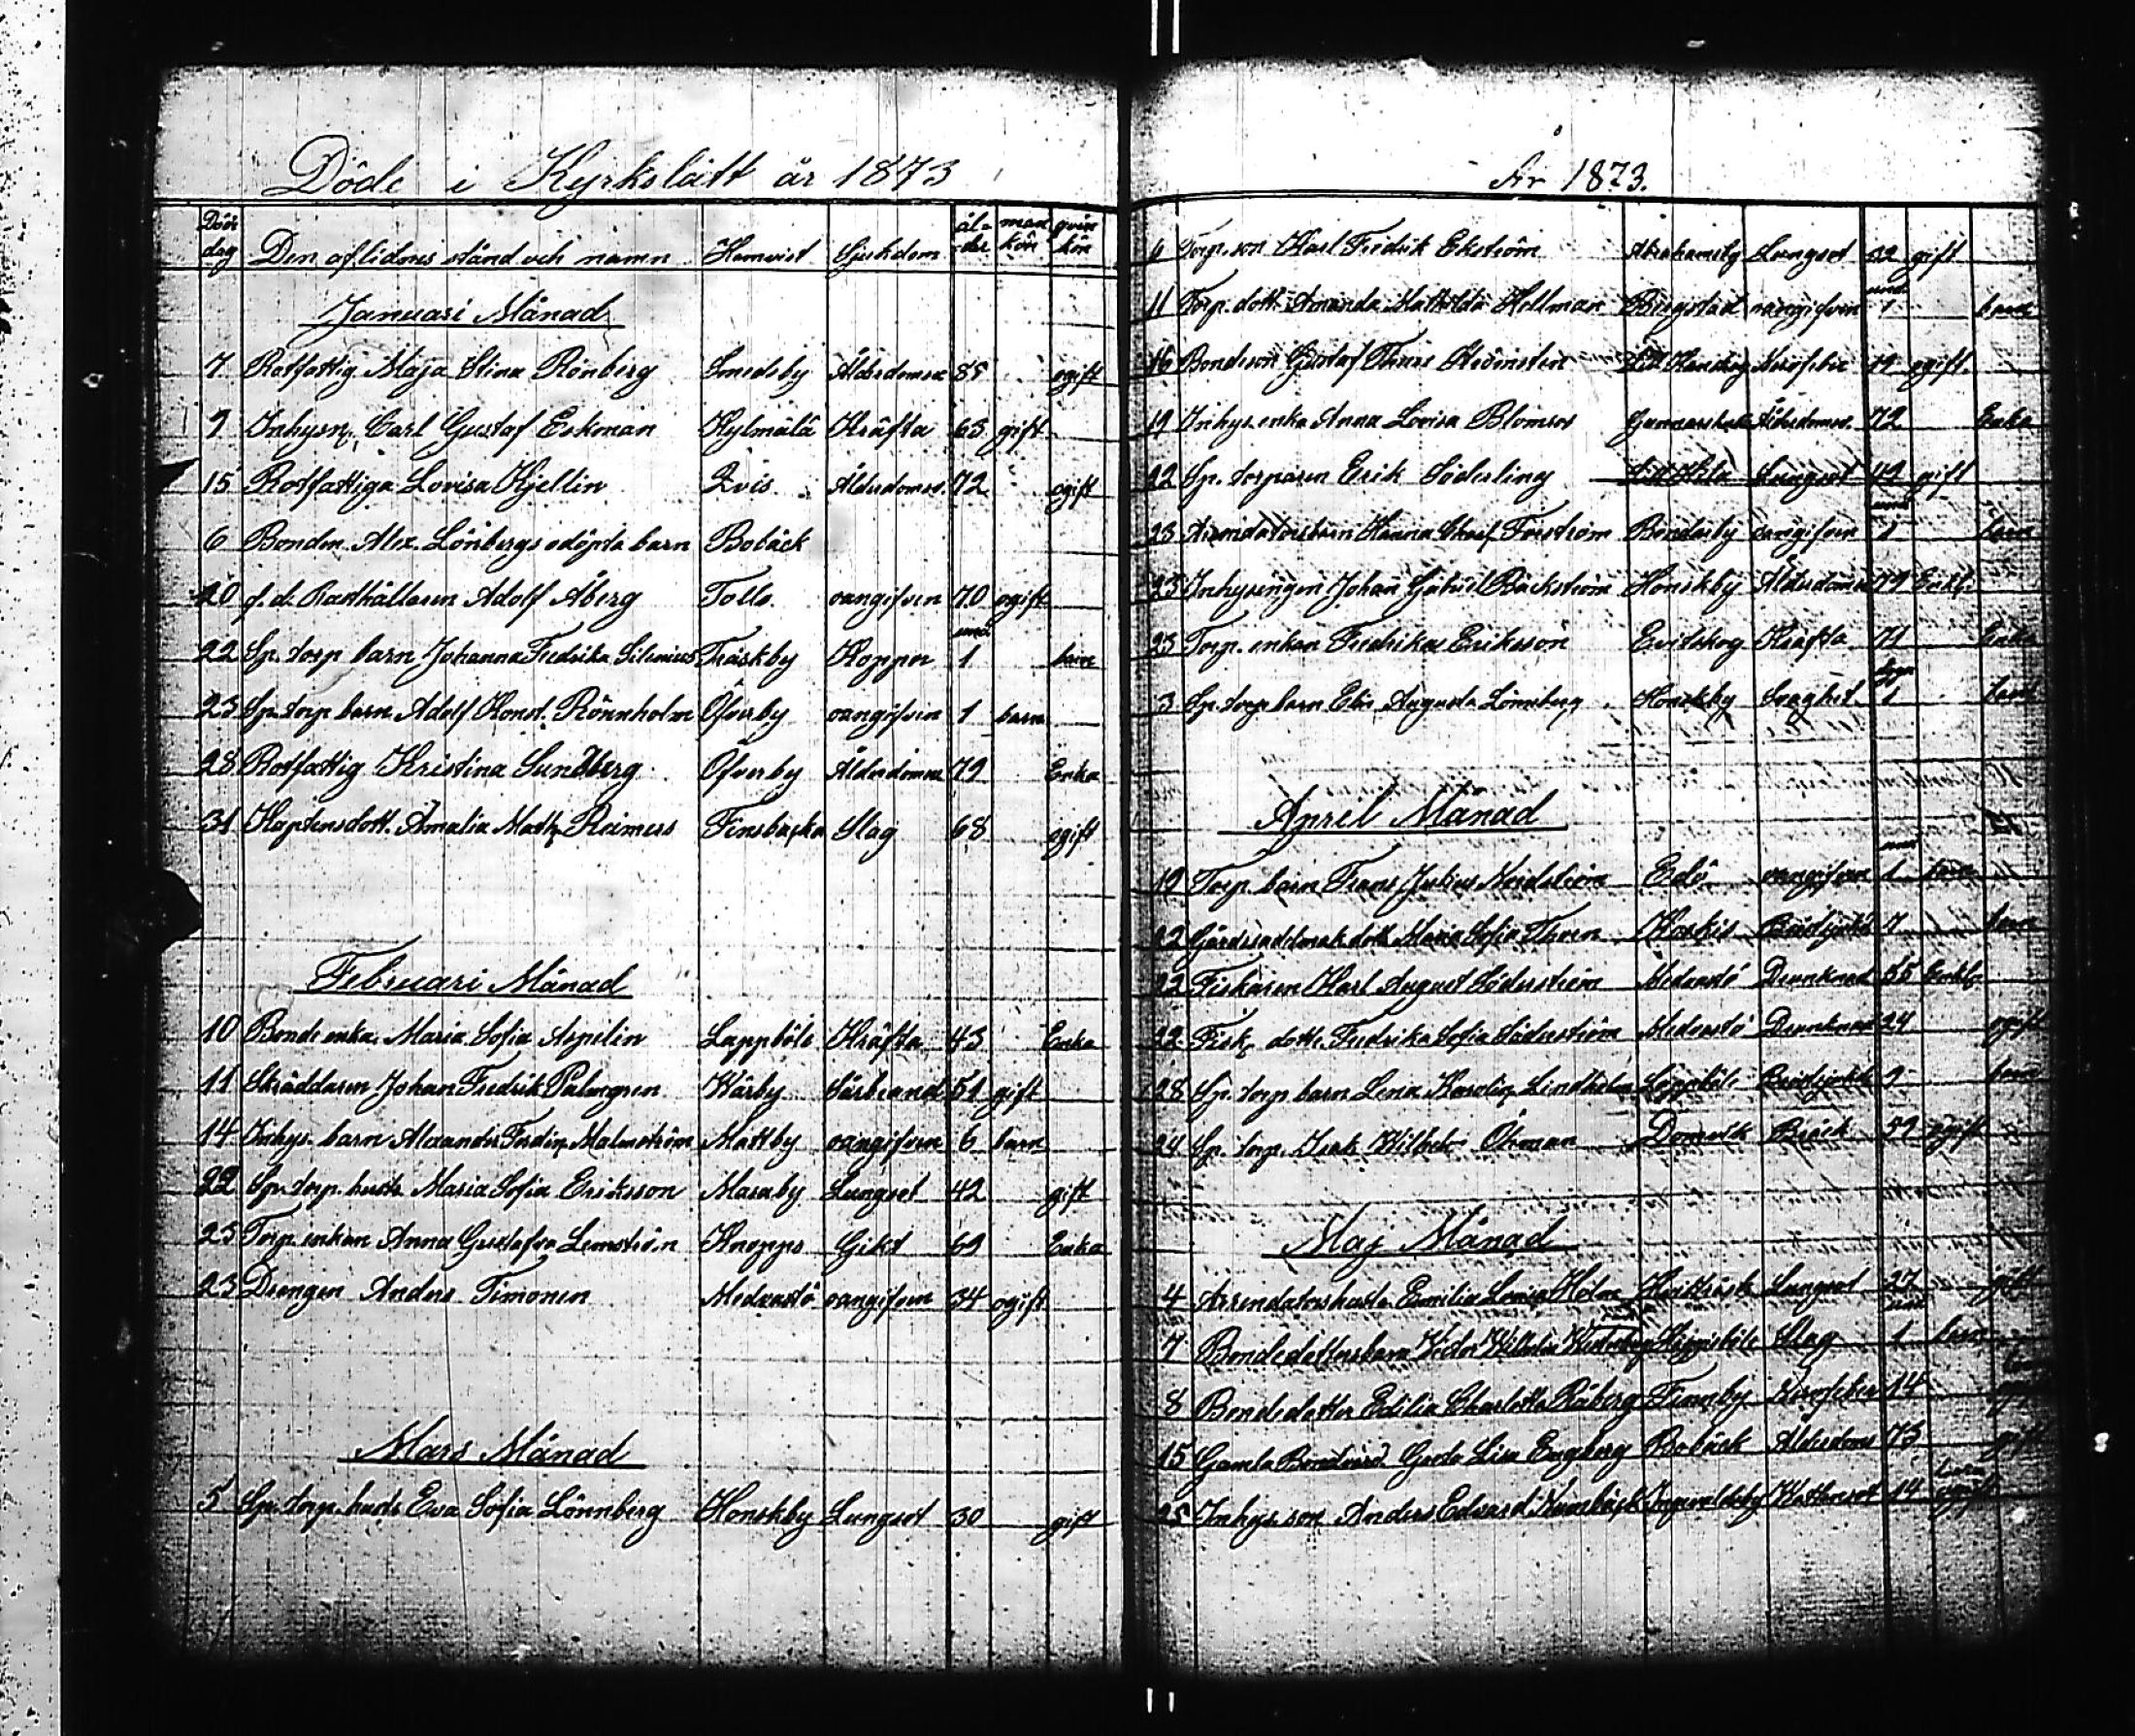 Döde i Kyrkslätt år 1873
Döds dag Den aflidnes stånd och namn Hemvist Sjukdom ål-der man kön qvin kön
Januari Månad
7 Rotfattig Maja Stina Rönberg Smedsby Ålderdomen 85 ogift
9 Inhysn. Carl Gustaf Eckman Kylmälä Kräfta 63 gift
15 Rotfattiga Lovisa Kjellin Qvis Ålderdomen 72 ogift
6 Bonden Alex. Lönbergs odöpta barn Bobäck
20 f.d. Rusthållaren Adolf Åberg Tolls oangifven 70 ogift
22 Sp. torp barn Johanna Fredrika Silenius Träskby Koppor und. 1 barn
23 Sp. torp barn Adolf Konst. Rönnholm Öfverby oangifven 1 barn
28 Rotfattig Kristina Sundberg Öfverby Ålderdomen 79 Enka
31 Kaptensdott. Amalia Math. Reimers Finsbacka Slag 68 ogift
Februari Månad
10 Bonde enka Maria Sofia Aspelin Lappböle Kräfta 43 Enka
11 Skräddaren Johan Fredrik Palmgren Kärby 51 gift
14 Inhys. barn Alexander Ferdin. Malmström Mattby oangifven 6 barn
22 Sp. torp. hustr. Maria Sofia Eriksson Masaby Lungsot 42 gift
23 Torp. enkan Anna Gustafva Lemström Knopps Gikt 69 Enka
23 Drengen Anders Timonen Medvastö oangifven 34 ogift
Mars Månad
5 Sp. torp. hustr. Eva Sofia Lönnberg Honskby Lungsot 30 gift
År 1873.
6 Torp. son Karl Fredrik Ekström Abrahamsby Lungsot 32 gift
11 Torp. dott. Amanda Mathilda Hellman Bergstad oangifven und. 1 barn
16 Bondeson Gustaf Thure Nerfeber 19 ogift.
19 Inhys. enka Anna Lovisa Blomros Ålderdomen 72 Enka
22 Sp. torparen Erik Söderling Lungsot 42 gift
23 Arendatorsbarn Hanna Forström Bondarby oangifven und. 1 barn
23 Inhysingen Johan Gabriel Bäckström Honskby Ålderdomen 79 Enkl.
23 Torp. enkan Fredrika Eriksson Evitskog Kräfta 71 Enka
3 Sp. torp barn Augusta Lönnberg Honskby Svaghet 1 barn
April Månad
19 Torp. barn Frans Julius Nordström Edö oangifven und. 1 barn
22 dott. Maria Sofia Thoren 7 barn
22 Fiskaren Karl August Söderström Medvastö Drunknad 55 Enkl.
22 Fisk. dotte. Fredrika Sofia Söderström Medvastö Drunknad 24 ogift
28 Sp. torp barn Lena Karolin. Lindholm Lappböle 9 barn
24 Sp. torp. Isak Wilhelm Öhman Domvik Bråck 59 ogift
Maj Månad
4 Arrendatorshustr. Emilia Lovisa Holm Hvitträsk Lungsot 27 gift
7 Bondedottersbarn Victor Wilhelm Slag und. 1 barn
8 Bondedotter Edilia Charlotta Råberg Finnby Nervfeber 14
15 Gamla Greta Lisa Engberg Bobäck Ålderdomen 73 gift
25 Inhys. son Anders Edvard Ingvaldsby Vattensot 14 barn ogift